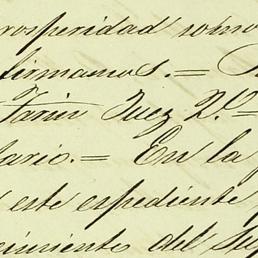 rosperidad como
firmamos.=
Farin Juez 2.º =
tario.= En la
este espediente
cimiento del Su